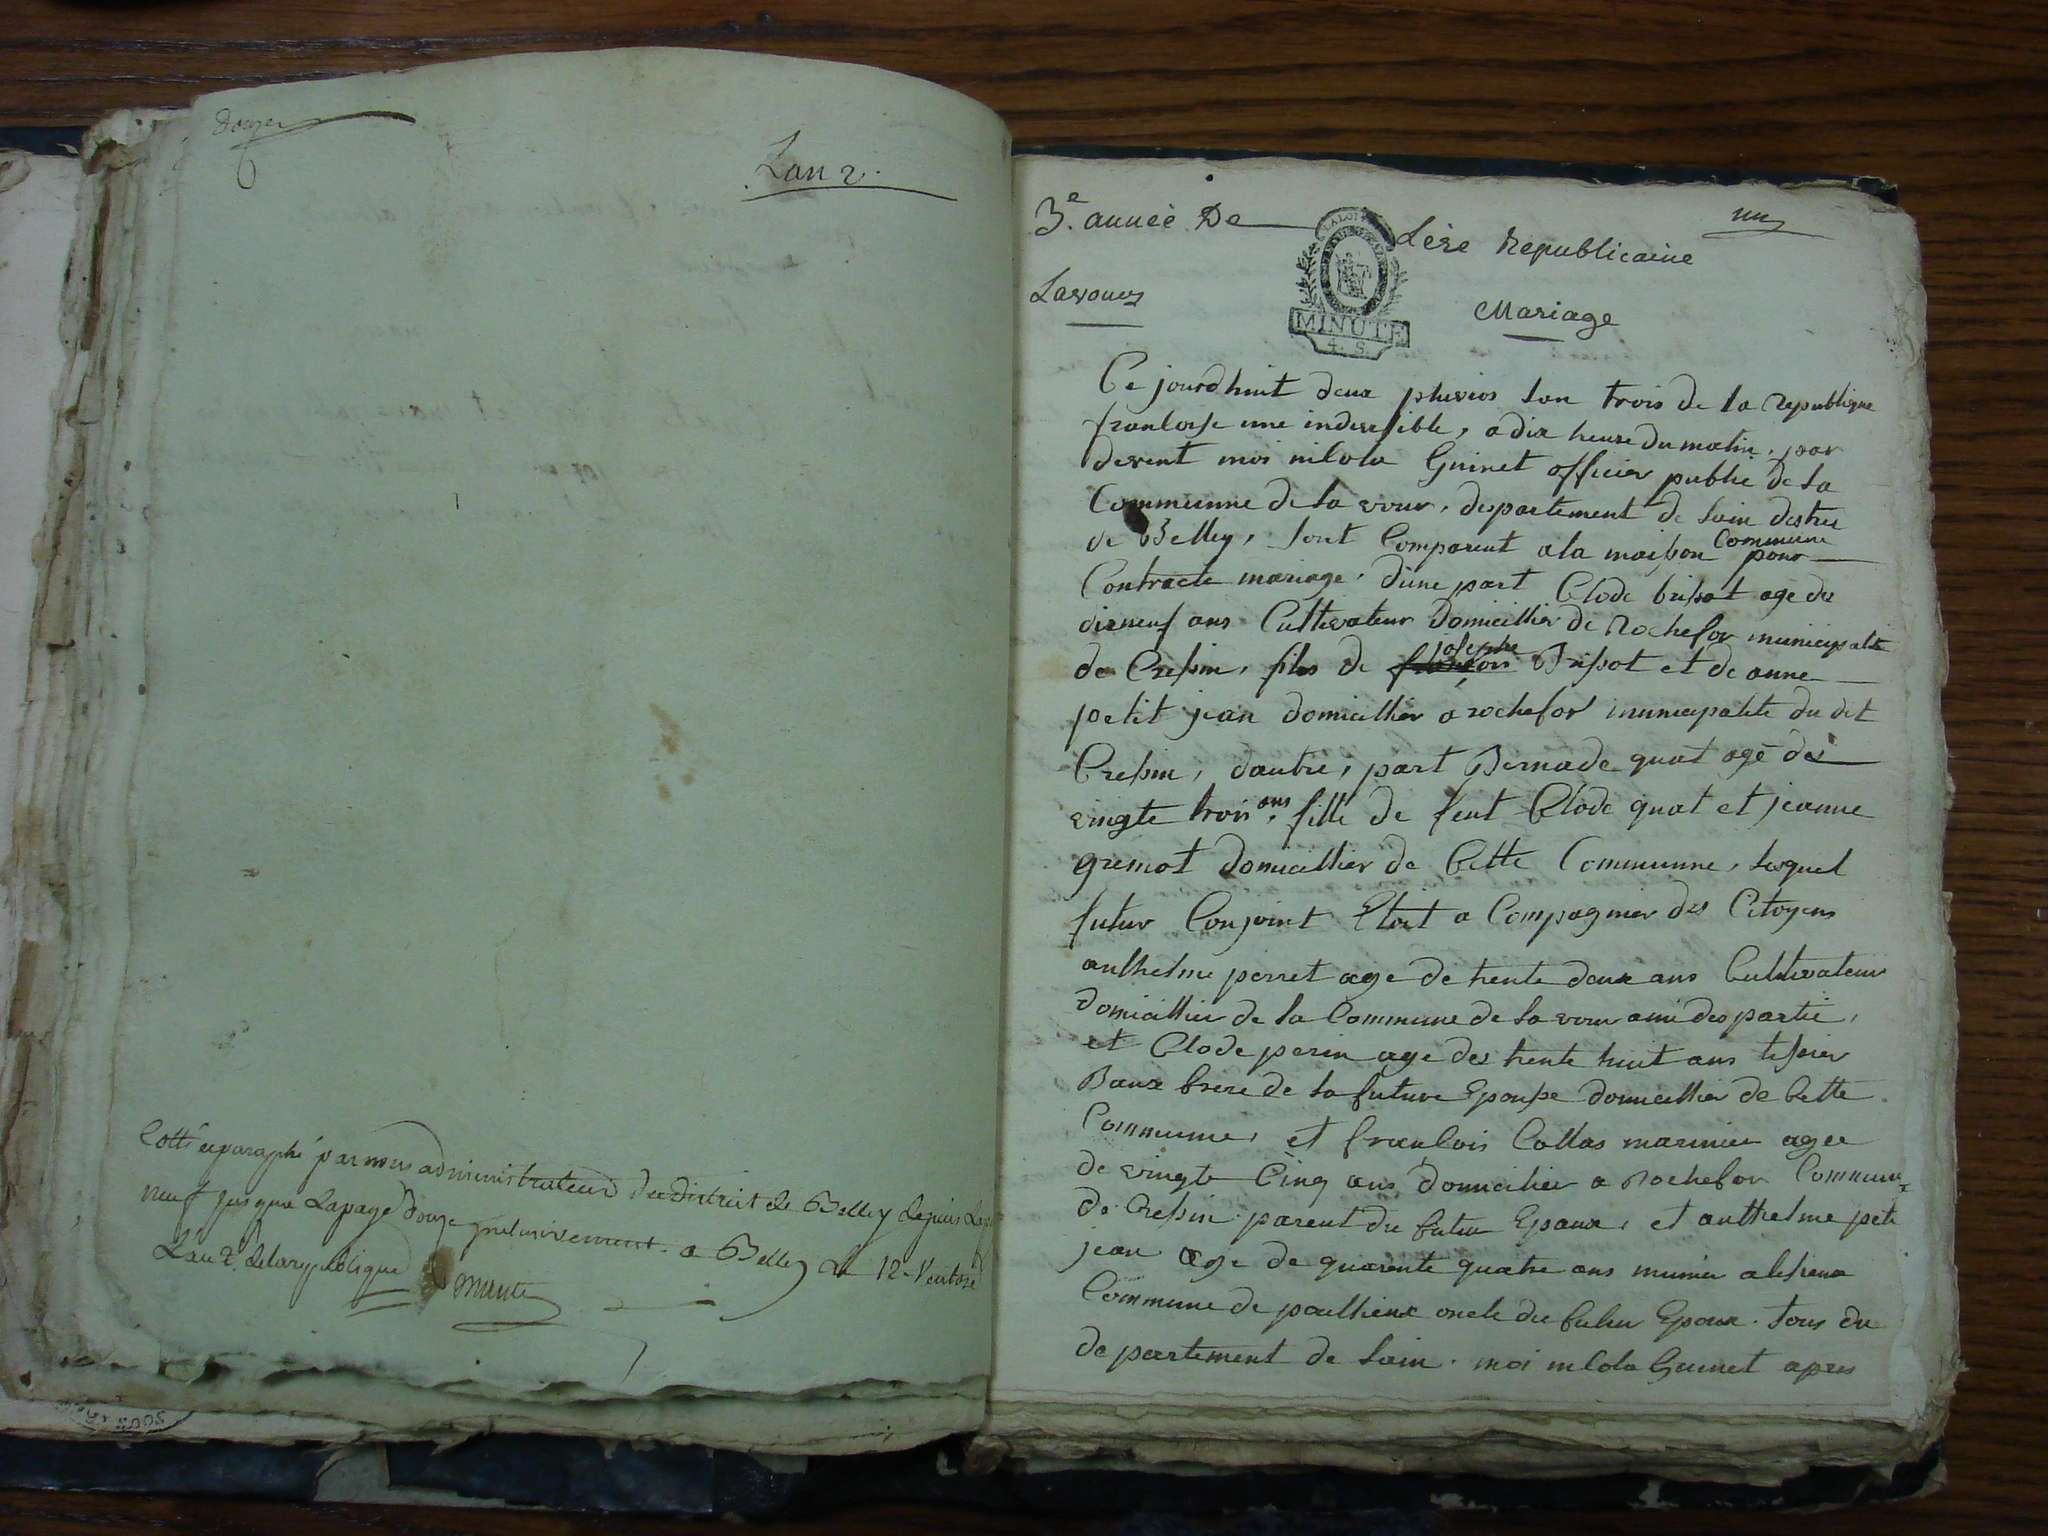 Douze
Lan 2.
Cotté et paraphé par nous administrateur du district de Belley depuis la page
neuf jusque la page douze inclusivement. a Belley le 12 Ventose
L'an 2e. de la republique
un
3e. année De Lère Republicaine
LA LOI
MINUTE
4. S.
Lavoues
Mariage
Ce jourdhuit deux pluvios lan trois de la republique
francoise une indivisible, a dix heure du matin, par
devent moi nicola Guinet officier public de la
Communne de la vour, departement de lain destrei
de Belley, sont Comparent a la maison Commune pour
Contracte mariage, d'une part Clode brisot age des
disneuf ans Cultivateur Domicillier de Rochefor municipalité
de Cressin, fils de francois josephe Brisot et de anne
petit jean domicillier a rochefor municipalité du dit
Cressin, dautre, part Bernade quat agé des
vingte trois ans, fille de feut Clode quat et jeanne
gremot domicillier de Cette Communne, lesquel
futur Conjoint Etoit a Compagnier des Citoyens
anthelme perret age de trente deux ans Cultivateur
domicillier de la Commune de la vour ami des partie,
et Clode perin age des trente huit ans tissier
Baux frere de la future Epousse domicillier de Cette
Commune, et francois Collas marinier agee
de vingte Cinq ans domicilier a Rochefor Commune
de Cressin parent du futur Epoux, et anthelme peti
jean age de quarente quatre ans munier
Commune de poullieux oncle du futur Epoux. tous du
departement de lain. moi nicola Guinet apres